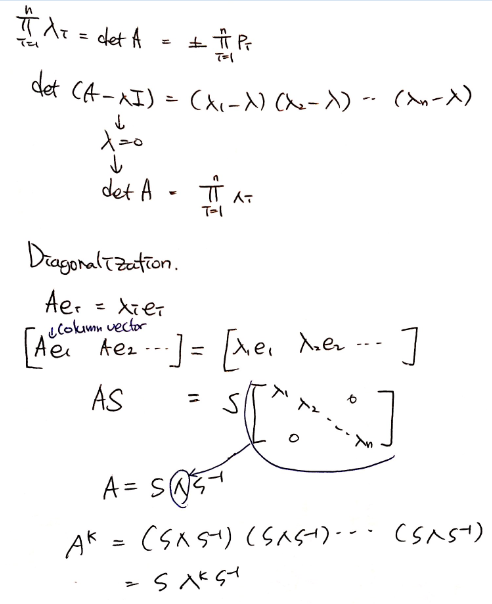 ∏_{i=1}^{n} λ_i = det A = ± ∏_{i=1}^{n} P_i
det (A-λI) = (λ₁-λ) (λ₂-λ) ·· (λn-λ)
↓
λ=0
↓
det A = ∏_{i=1}^{n} λ_i
Diagonalization.
Ae_i = λ_i e_i
↓column vector
[Ae₁ Ae₂ ···] = [λ₁e₁ λ₂e₂ ··· ]
AS = S [λ₁ λ₂ 0 ··· 0 λn]
A = S Λ S⁻¹
A^k = (S Λ S⁻¹) (S Λ S⁻¹) ··· (S Λ S⁻¹)
= S Λ^k S⁻¹